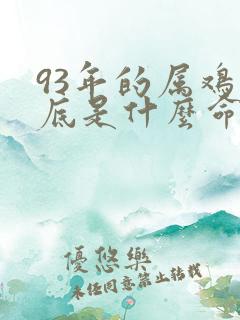 93年的属鸡
底是什麼命
優悠樂
未经同意禁止转载